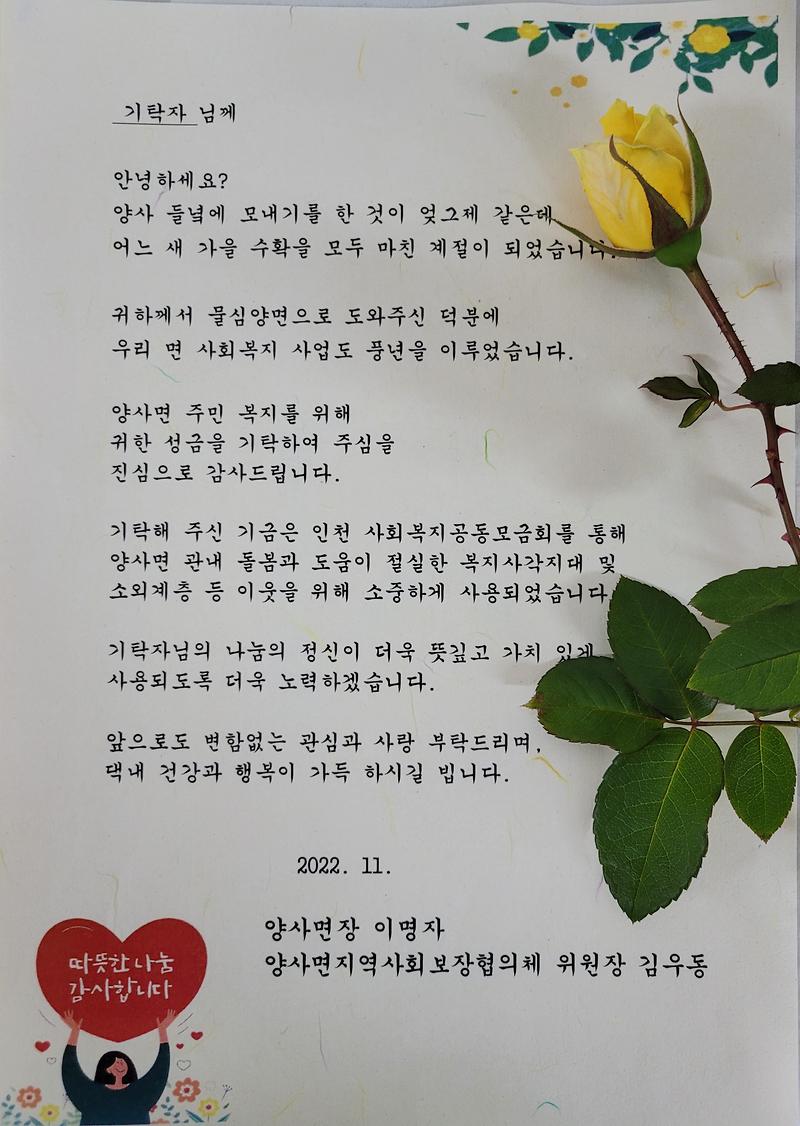 기탁자 님께
안녕하세요?
양사 들녘에 모내기를 한 것이 엊그제 같은데
어느 새 가을 수확을 모두 마친 계절이 되었습니다.
귀하께서 물심양면으로 도와주신 덕분에
우리 면 사회복지 사업도 풍년을 이루었습니다.
양사면 주민 복지를 위해
귀한 성금을 기탁하여 주심을
진심으로 감사드립니다.
기탁해 주신 기금은 인천 사회복지공동모금회를 통해
양사면 관내 돌봄과 도움이 절실한 복지사각지대 및
소외계층 등 이웃을 위해 소중하게 사용되었습니다.
기탁자님의 나눔의 정신이 더욱 뜻깊고 가치 있게
사용되도록 더욱 노력하겠습니다.
앞으로도 변함없는 관심과 사랑 부탁드리며,
댁내 건강과 행복이 가득 하시길 빕니다.
2022. 11.
양사면장 이명자
양사면지역사회보장협의체 위원장 김우동
따뜻한 나눔
감사합니다